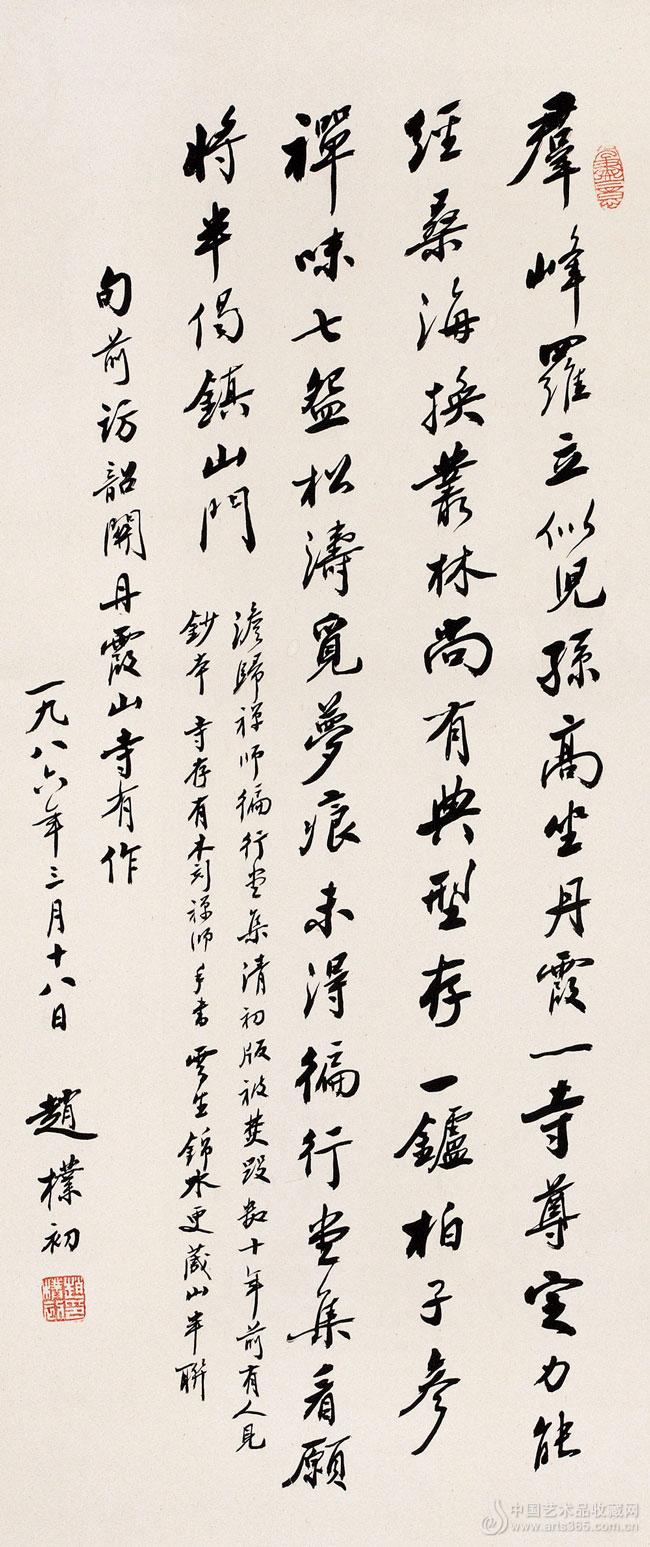 羣峰羅立似児孫高坐丹霞一寺尊定力能
經桑海換叢林尚有典型存一鑪柏子參
禪味七盌松濤覓夢痕未得徧行堂集看願
將半偈鎮山門
澹歸禪师徧行堂集清初版被焚毀數十年前有人見
鈔本 寺存有木刻禅师手書雲生錦水更藏山半聯
旬前訪韶關丹霞山寺有作
一九八六年三月十八日 趙樸初
趙樸初
中国艺术品收藏网
www.arts365.com.cn